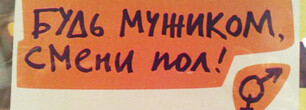 БУДЬ МУЖИКОМ,
СМЕНИ ПОЛ!